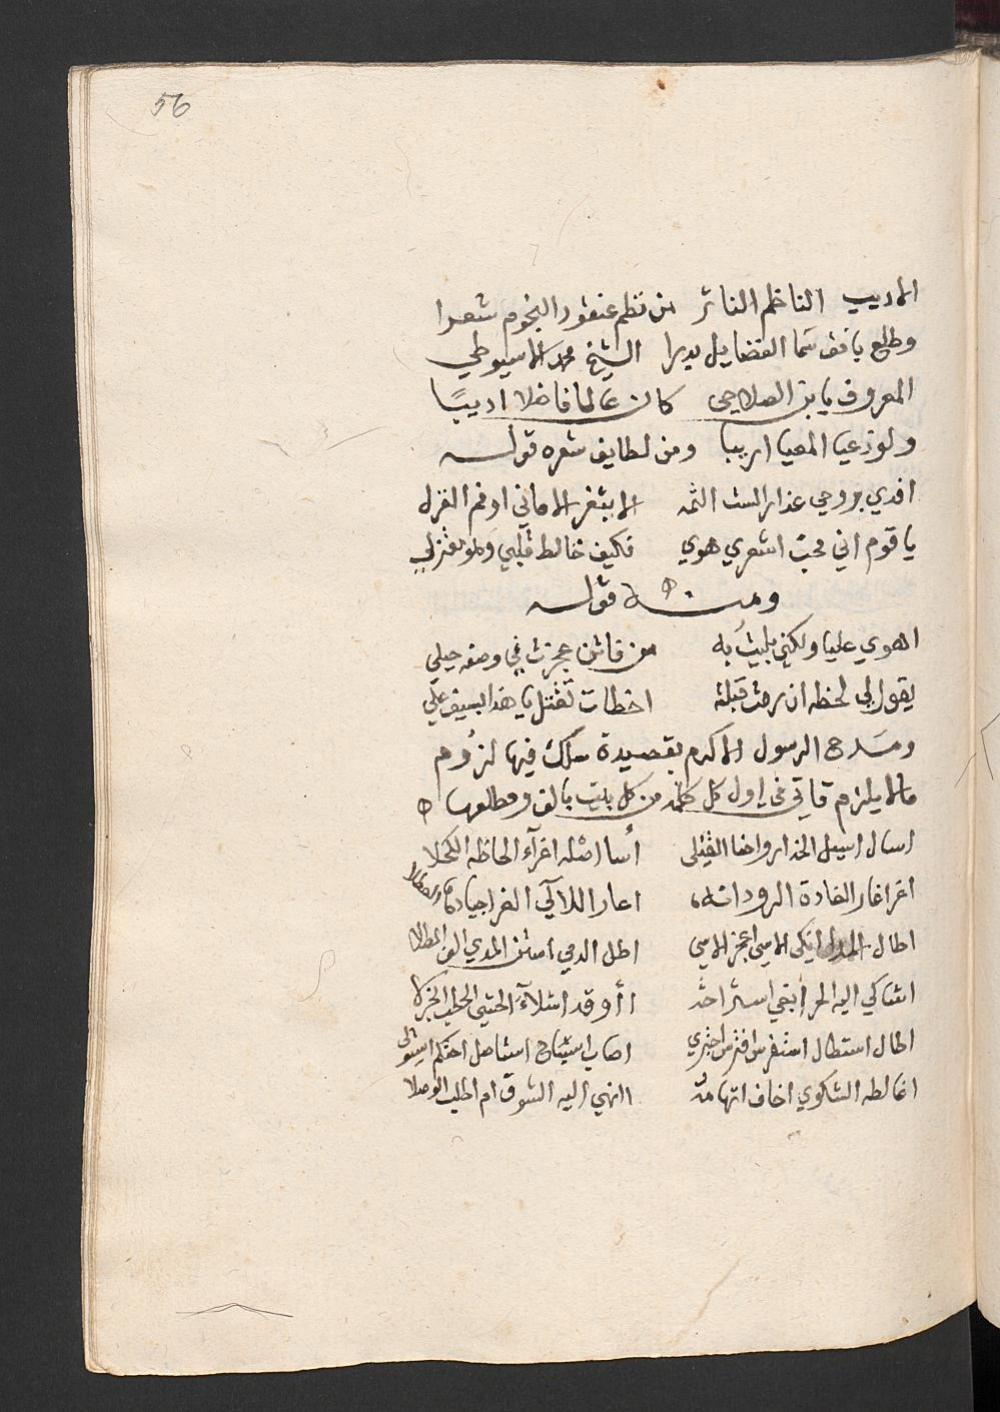 56
الاديب الناظم الناثر من نظم عنقود النجوم شعرا
وطلع بافق سما الفضايل بدرا الشيخ محمد الاسيوطي
المعروف بابن الصلاحي كان عالما فاضلا اديبًا
ولوذعيا المعيا اريبا ومن لطايف شعره قوله
افدي بروحي عذار الست الثمه الا بثغر الاماني او فم الغزل
يا قوم اني محبّ اشعري هوي فكيف خالط قلبي وَهْو معتزلي
ومنه قوله
اهوي عليا ولكني بليتُ به من فاتن عجزت في وصفه حيلي
يقول لي لحظه ان رمت قبلته اخطات تقتل يا هذا بسيف علي
ومدح الرسول الاكرم بقصيدة سلك فيها لزوم
مالا يلزم فاتي في اول كل كلمة من كل بيت بالف ومطلعها
اسال اسيل الخد ارواحنا القتلى أسا اصله اغرآء الحاظه الكحلا
اغر اغار الغادة الرود انه اعار اللآلي الغر اجيادها
اطال ابكى الاسي اعجز الاسي اطل الدمي
اشاكي اليه الحر أبقي اسير احد ا أوقد اشلآء الحشي الحطب الجزلا
اطال استطال استفرس افترس اجتري اصاب استباح استاصل احتكم استولى
اغالطه الشكوي اخاف اتهامه اانهي اليه الشوق ام اطلب الوصلا